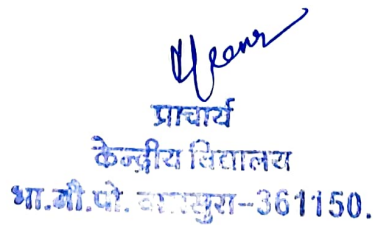 प्राचार्य
केन्द्रीय विद्यालय
भा.नौ.पो. -361150.